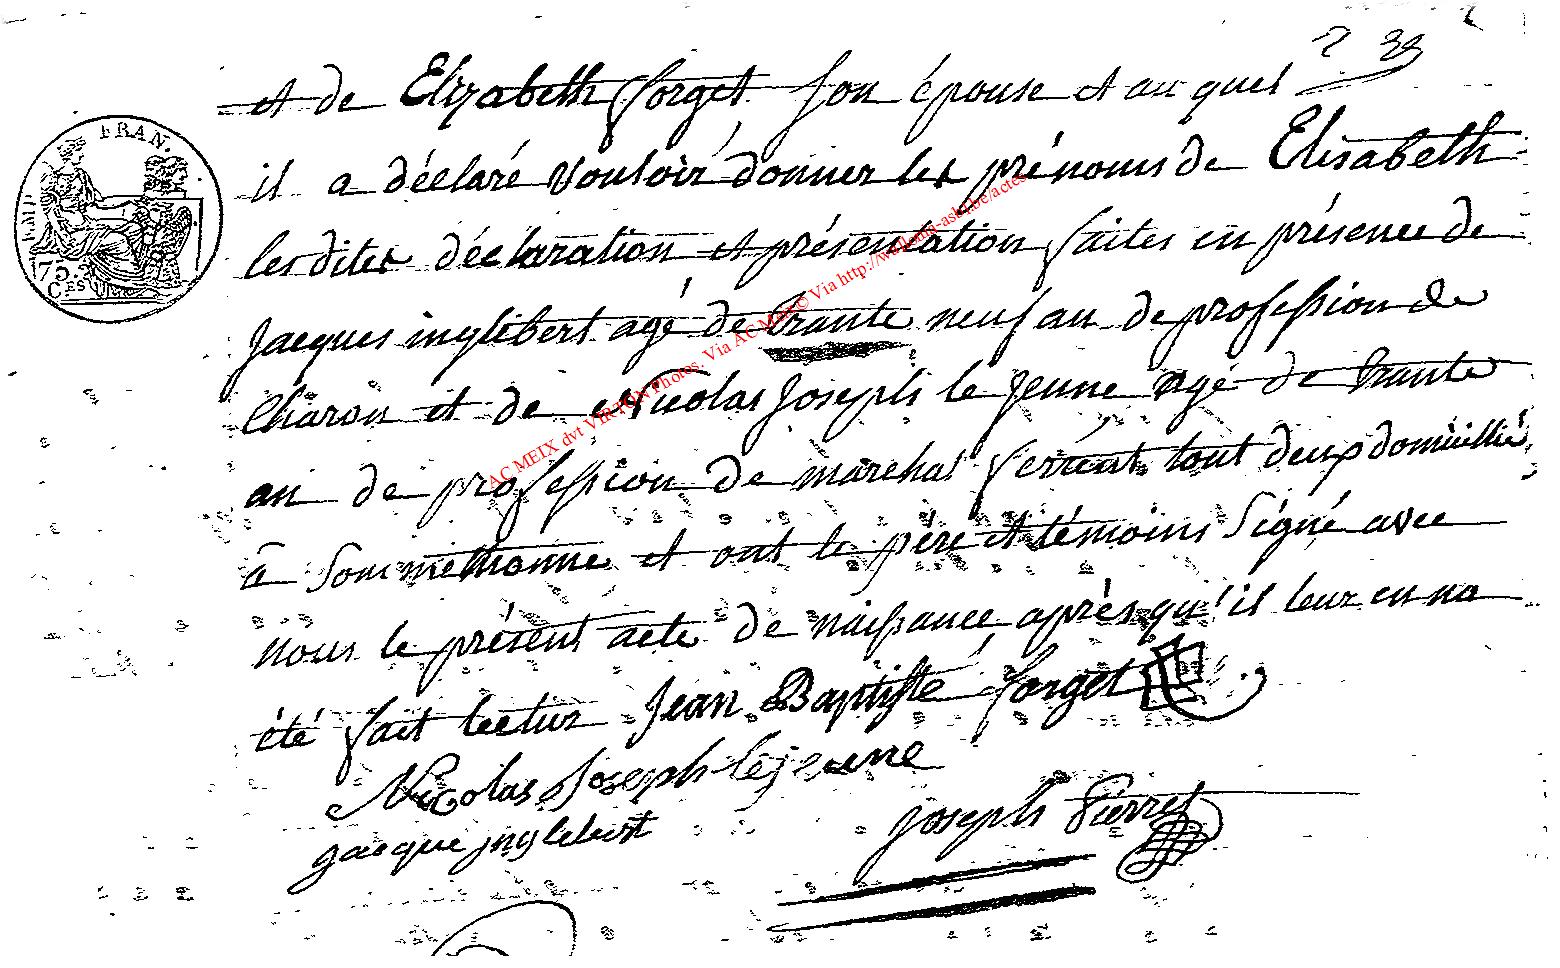 2 39
et de Elizabeth forget son épouse et au quel
il a déclaré vouloir donner les prénoms de Elisabeth
les dites déclaration et présentation faites en présence de
jacques inglebert agé de trante neuf an de profession de
Charon et de Nicolas joseph le jeune agé de trante
an de profession de marehal ferrent tout deux domicillié
a Sommethonne et ont le père et témoins Signé avec
nous le présent acte de naissance après qu'il leur en na
été fait lectur Jean Baptiste forget
Nicolas Joseph lejeune
jacque jnglebert
joseph Pierret
EMP. FRAN.
75.
CES
AC MEIX dvt VIRTON Photos. Via AC Meix © Via http://wallonia-asbl.be/actes